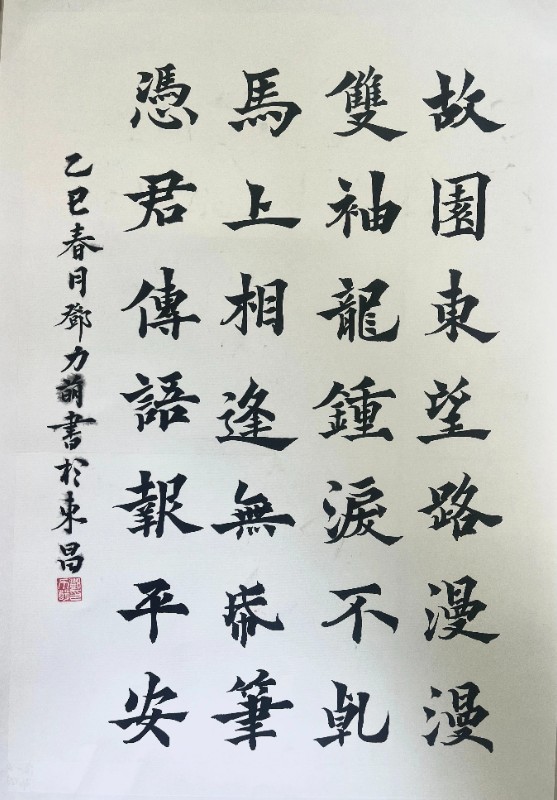 故園東望路漫漫
雙袖龍鍾淚不乹
馬上相逢無帋筆
憑君傳語報平安
乙巳春月鄧力萌書於東昌